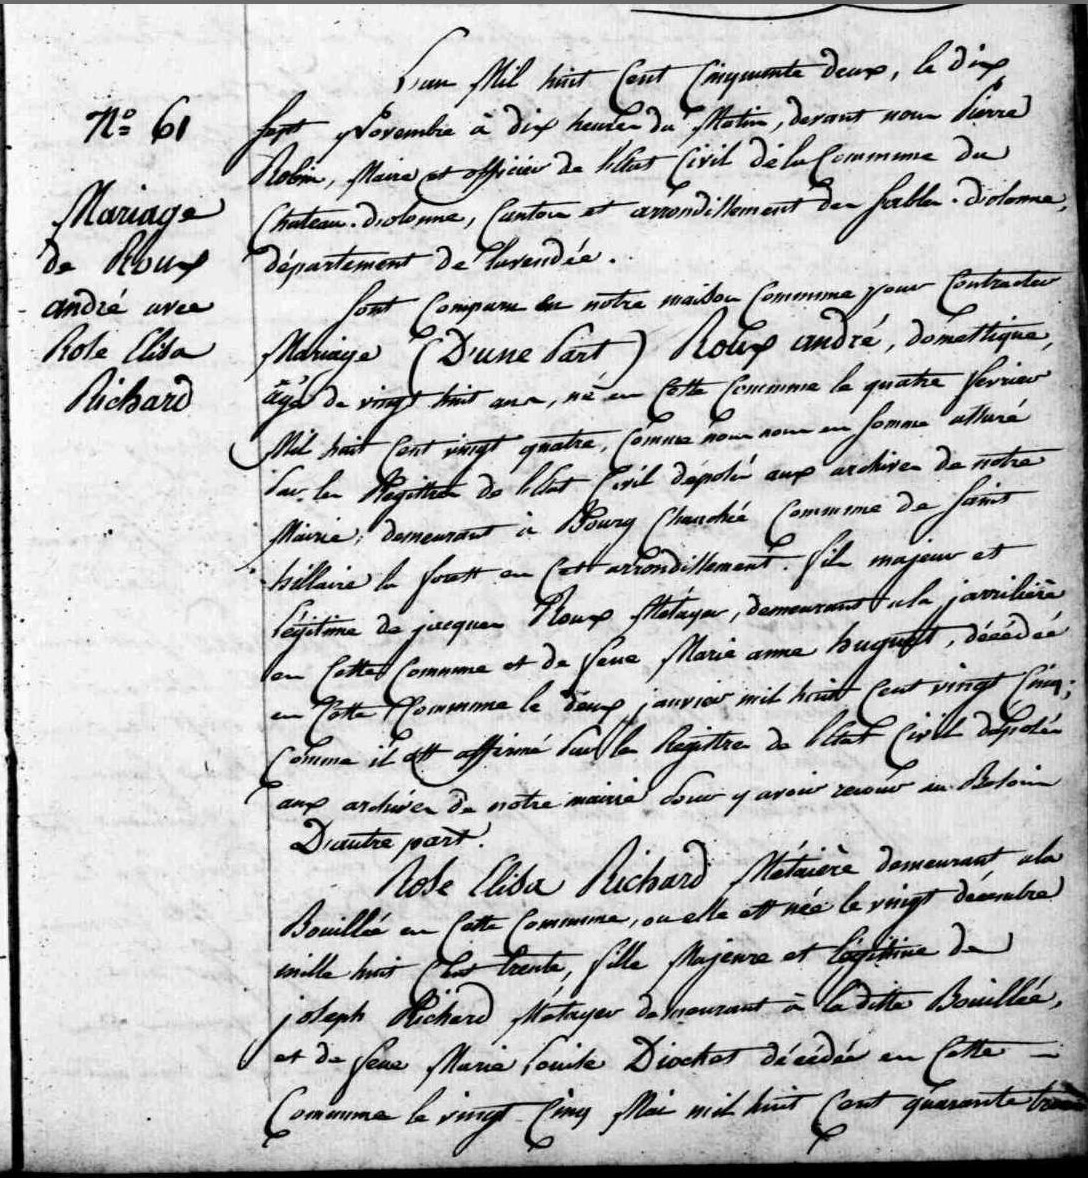 N.º 61
Mariage
de Roux
andré avec
Rose Elisa
Richard
L'an Mil huit Cent Cinquante deux, le dix
sept Novembre à dix heures du Matin, devant nous Pierre
Robin, Maire et officier de l'Etat Civil de la Commune du
Chateau-d'olonne, Canton et arrondissement des sables-d'olonne,
département de lavendée.
Sont Comparu en notre maison Commune pour Contracter
Mariage (D'une Part) Roux andré, doméstique,
âgé de vingt huit ans, né en Cette Commune le quatre fevrier
Mil huit Cent vingt quatre, Comme nous nous en somme assuré
sur les Régistres de l'Etat Civil déposés aux archives de notre
Mairie, demeurant à Bourg Chauchée Commune de saint
hillaire la forest en Cet arrondissement. fils majeur et
légitime de jacques Roux Métayer, demeurant a la jarrilière
en Cette Commune et de feue Marie anne huguet, décédée
en Cette Commune le deux janvier mil huit Cent vingt Cinq;
Comme il est affirmé sur les Régistres de l'Etat Civil déposés
aux archives de notre mairie pour y avoir recour au Besoin
D'autre part.
Rose Elisa Richard Métaière demeurant a la
Bouillée en Cette Commune, ou elle est née le vingt décembre
mille huit Cent trente, fille Majeure et légitime de
joseph Richard Métayer demeurant à la ditte Bouillée,
et de feue Marie Louise Diochet décédée en Cette
Commune le vingt-Cinq Mai mil huit Cent quarante